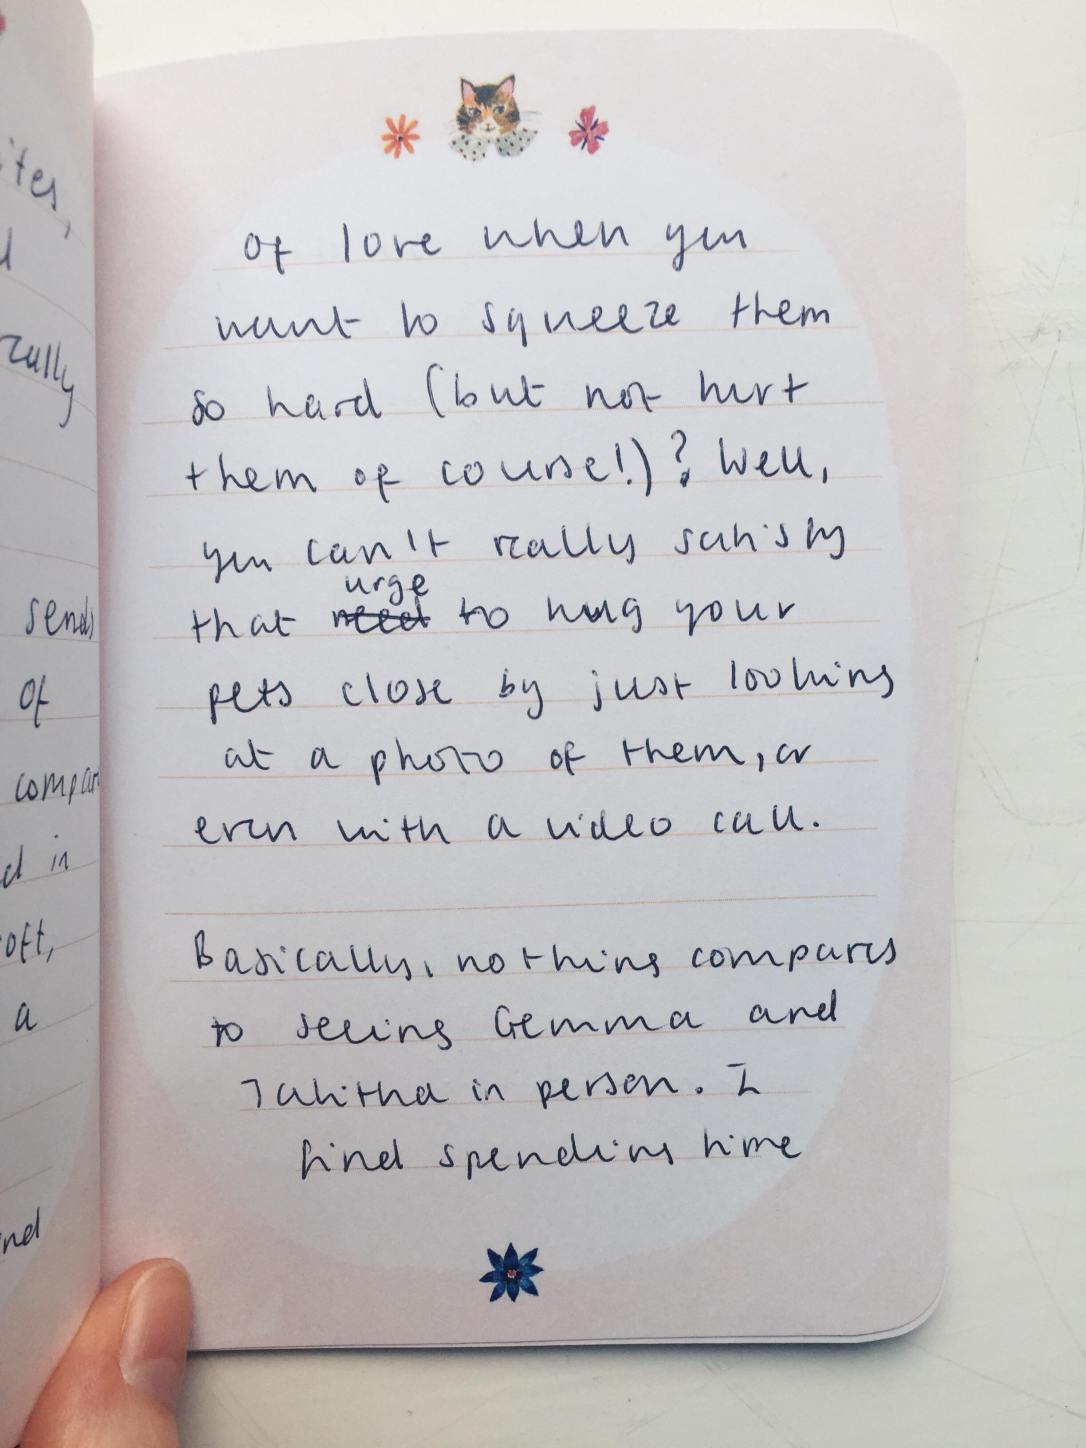 ites,
rcally
sends
of
compar
d in
oft,
a
nd
of love when you
want to squeeze them
so hard (but not hurt
them of course!)? Well,
you can't really satisfy
urge
that need to hug your
pets close by just looking
at a photo of them, or
even with a video call.
Basically, nothing compares
to seeing Gemma and
Tabitha in person. I
find spending time